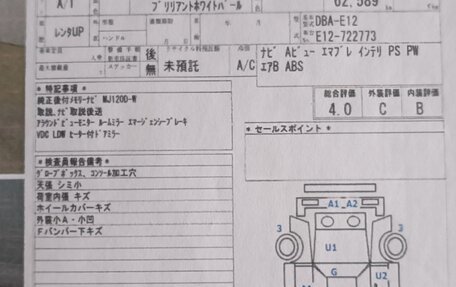 A/1 ブリリアントホワイトパール 62,589
型式 DBA-E12
レンタUP ハンドル E12-722773
リサイクル料預託金 冷房
ステッカー 後無 未預託 A/C
ナビ Aビュー エマブレ インテリ PS PW
エアB ABS
総合評価 外装評価 内装評価
4.0 C B
* 特記事項 *
純正後付メモリーナビ MJ120D-W
取説、ナビ取説後送
アラウンドビューモニター ルームミラー エマージェンシーブレーキ
VDC LDW ヒーター付ドアミラー
* セールスポイント *
* 検査員報告備考 *
グローブボックス、コンソール加工穴
天張 シミ小
荷室内張 キズ
ホイールカバーキズ
外装小A・小凹
Fバンパー下キズ
A1 A2
3 3
U1
G
U2